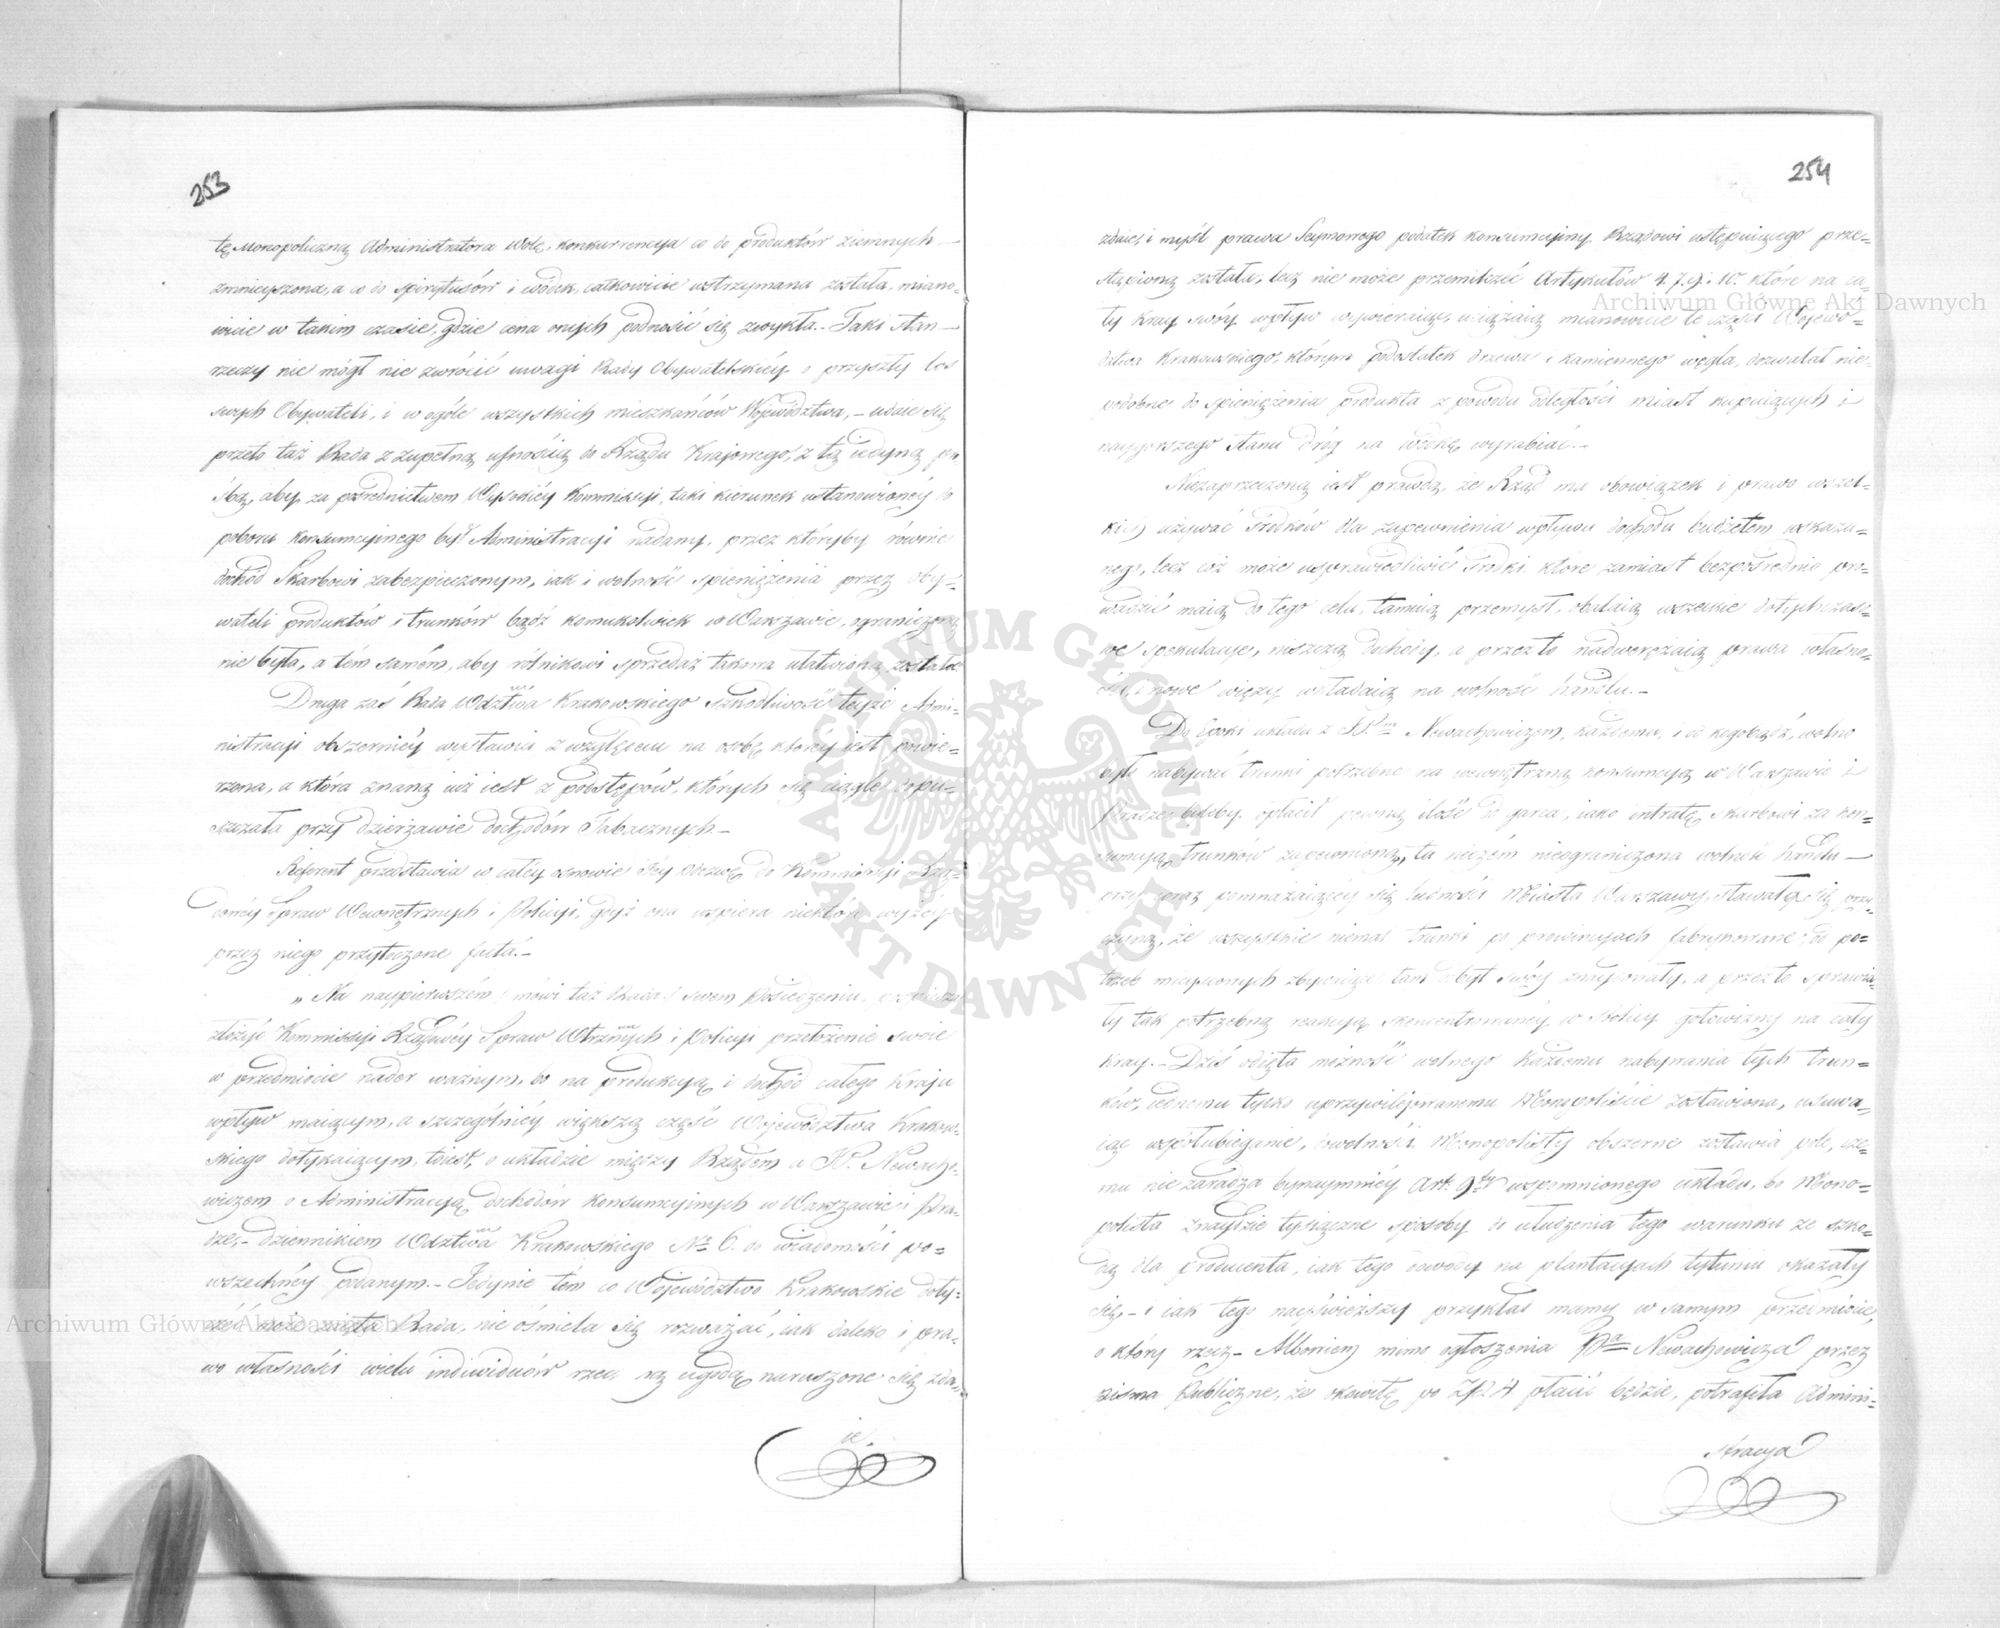 253
tę Monopoliczną Administratora wolę, konkurrencyja co do produktów ziemnych
zmnieyszona, a co do spirytusów i wódek, całkowicie wstrzymana została, miano-
wicie w takim czasie, gdzie cena onych podnosić się zwykła. - Taki stan
rzeczy nie mógł nie zwrócić uwagi Rady Obywatelskiéy o przyszły los
swych Obywateli, i w ogóle wszystkich mieszkańców Województwa, - udaie się
przeto taż Rada z zupełną ufnością do Rządu Krajowego, z tą iedyną pro-
śbą, aby za pośrednictwem Wysokiéy Kommissyi, taki kierunek ustanowionéy do
poboru konsumcyinego był Administracyi nadany, przez któryby równie
dochód Skarbowi zabezpieczonym, iak i wolność spieniężenia przez oby-
wateli produktów i trunków bądź komukolwiek w Warszawie, ograniczoną
nie była, a tém samém, aby rólnikowi sprzedaż takowa ułatwioną została.
Druga zaś Rada Wdztwa Krakowskiego szkodliwość teyże Admi-
nistracyi obszerniéy wystawia z względu na osobę któréy iest powie-
rzona, a która znaną iuż iest z podstępów, których się ciągle dopu-
szczała przy dzierżawie dochodów Tabacznych. -
Referent przedstawia w całéy osnowie Jéy odezwę do Kommissyi Rzą-
dowéy Spraw Wewnętrznych i Policyi, gdyż ona wspiera niektóre wyżéy
przez niego przytoczone facta. -
„Na naypierwszém (mówi taż Rada) swem Posiedzeniu,
złożyć Kommissyi Rządowéy Spraw Wtrznych i Policyi przełożenie swoie
w przedmiocie nader ważnym, bo na produkcyą i dochód całego Kraju
wpływ maiącym, a szczególniéy większą część Województwa Krakow-
skiego dotykaiącym, to iest, o układzie między Rządem a JP. Newacho-
wiczem o Administracyą dochodów konsumcyinych w Warszawie i Pra-
dze, - dziennikiem Wdztwa Krakowskiego No 6. do wiadomości po-
wszechnéy podanym. - Jedynie tém co Województwo Krakowskie doty-
czéć może zaięta Rada, nie ośmiela się rozważać, iak daleko i pra-
wo własności wielu individuów rze ną ugodą naruszone się zda-
ie.
254
zdaie, i myśl prawa Seymowego podatek konsumcyiny Rządowi ustępuiącego prze-
stąpioną została, lecz nie może przemilczéć Artykułów 4. 7. 9. i 10. które na ca-
ły Kray swóy wpływ wywieraiąc, uciążaią mianowicie te części Wojewó-
dztwa Krakowskiego, którym podostatek drzewa i kamiennego węgla, dozwalał nie-
podobne do spieniężenia produkta z powodu odległości miast kupuiących i
naygorszego stanu dróg na wódkę wyrabiać. -
Niezaprzeczoną iest prawdą, że Rząd ma obowiązek i prawo wszel-
kich używać środków dla zapewnienia wpływu dochodu budżetem wskaza-
nego, lecz cóż może usprawiedliwić środki które zamiast bezpośrednio pro-
wadzić maią do tego celu, tamuią przemysł, obalaią wszelkie dotychczaso-
we spekulacye, niszczą dochody, a przez to nadwerężaią prawa własno-
ści, i nowe więzy wkładaią na wolność handlu. -
Do Epoki układu z JPm Newachowiczem, każdemu, i od kogobądź, wolno
było nabywać trunki potrzebne na wewnętrzną konsumcyą w Warszawie i
Pradze, byleby opłacił pewną ilość od garca, iako intratę Skarbowi za kon-
sumcyą trunków zapewnioną, ta niczém nieograniczona wolność handlu
przy coraz pomnażaiącéy się ludności Miasta Warszawy, stawała się przy-
czyną, że wszystkie niemal trunki po prowincyach fabrykowane, do po-
trzeb mieyscowych zbywaiące tam odbyt swóy znaydowały, a przez to sprawia-
ły tak potrzebną reakcyą skoncentrowanéy w Stolicy gotowizny na cały
Kray. - Dziś odięta możność wolnego każdemu nabywania tych trun-
ków, iednemu tylko uprzywilejowanemu Monopoliście zostawiona, usuwa-
iąc współubieganie, dowolności Monopolisty obszerne zostawia pole, cze-
mu nie zaradza bynaymniéy Art. 9ty wspomnionego układu, bo Mono-
polista znaydzie tysiączne sposoby do ułudzenia tego warunku ze szko-
dą dla producenta, iak tego dowody na plantacyach tytuniu okazały
się, - i iak tego nayświeższy przykład mamy w samym przedmiocie,
o który rzecz - Albowiem mimo ogłoszenia Pa Newachowicza przez
pisma Publiczne, że okowitę po Zł. 4 płacić będzie, potrafiła Admini-
stracya
ARCHIWUM GŁÓWNE AKT DAWNYCH
Archiwum Główne Akt Dawnych
Archiwum Główne Akt Dawnych